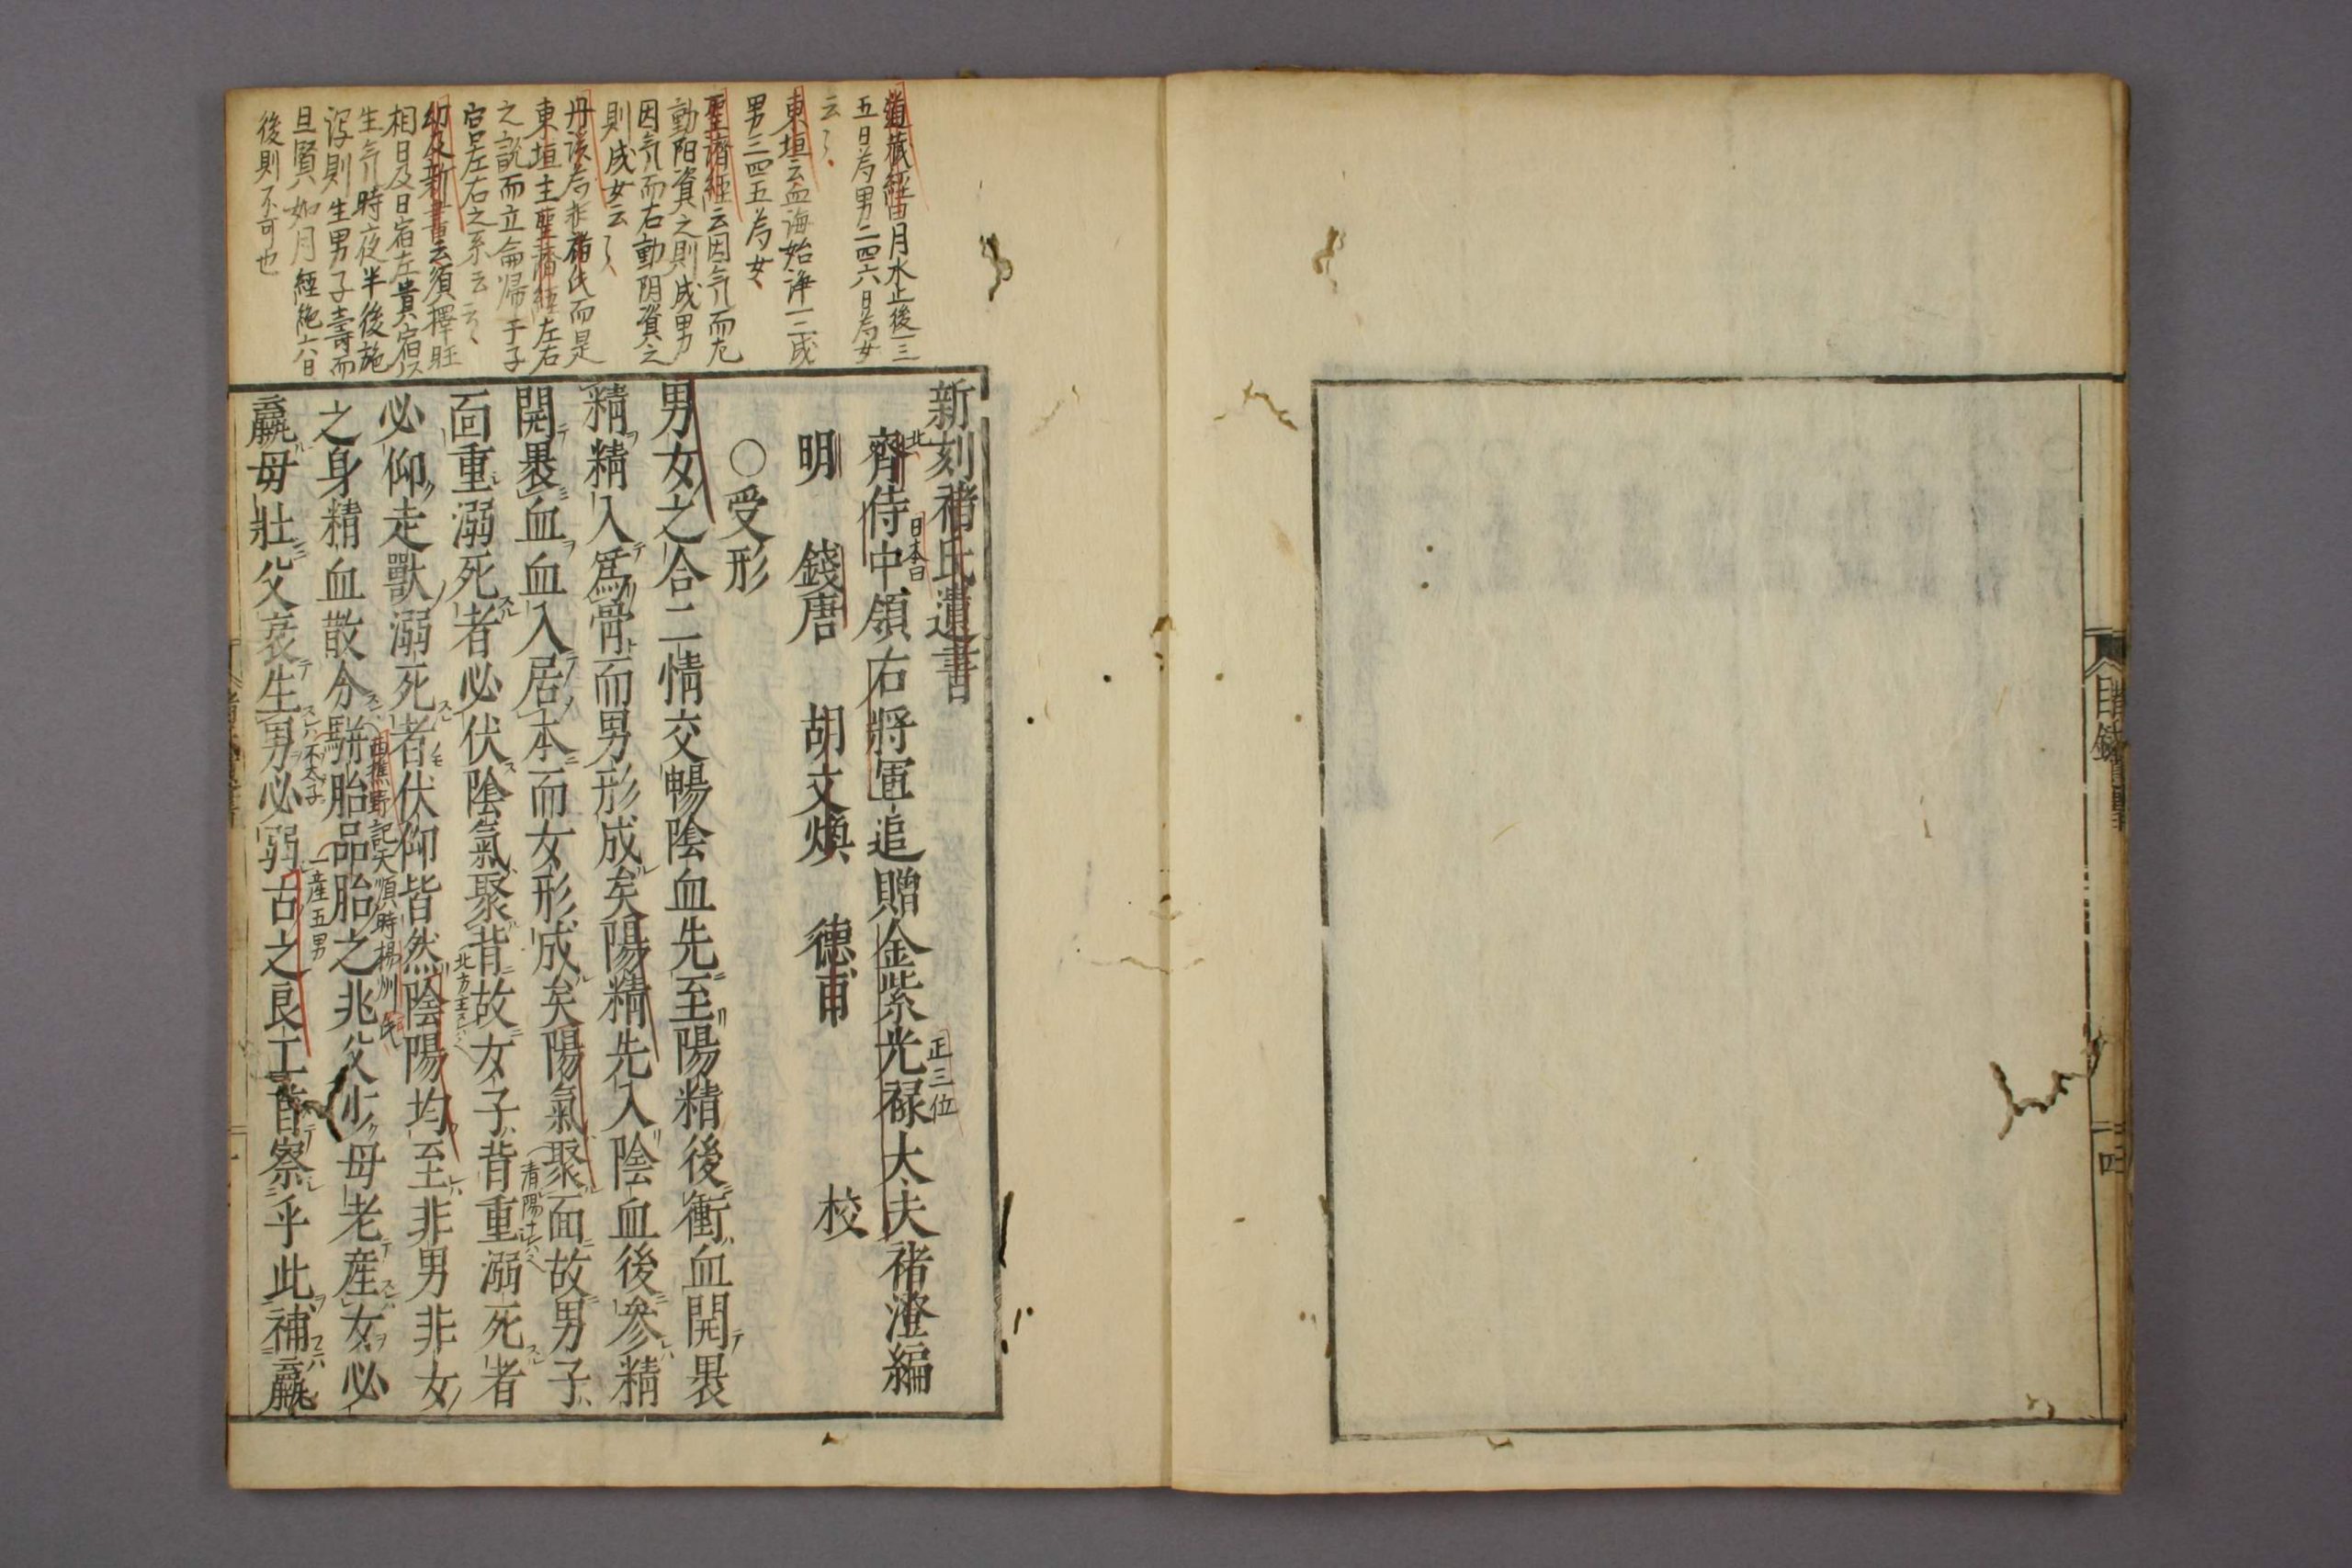 道藏經曰月水止後一三
五日為男二四六日為女
云々
東垣云血海始淨一二成
男三四五為女
聖濟經云因气而左
動阳資之則成男
因气而右動阴資之
則成女云々
丹溪為非褚氏而是
東垣主聖濟經左右
之說而立論帰于子
宮左右之系云云々
幼及新書云須擇旺
相日及日宿在貴宿
生气時夜半後施
泻則生男子壽而
且賢如月經絶六日
後則不可也
新刻褚氏遺書
北
齊侍中領右將軍追贈金紫光祿大夫褚澄編
日本曰
正三位
明 錢唐 胡文煥 德甫 校
○受形
男女之合二情交暢陰血先至陽精後衝血開裹
精精入爲骨而男形成矣陽精先入陰血後參精
開裹血血入居本而女形成矣陽氣聚面故男子
面重溺死者必伏陰氣聚背故女子背重溺死者
必仰走獸溺死者伏仰皆然陰陽均至非男非女
之身精血散分駢胎品胎之兆父少母老産女必
羸母壯父衰生男必弱古之良工首察乎此補羸
一産五男
目錄